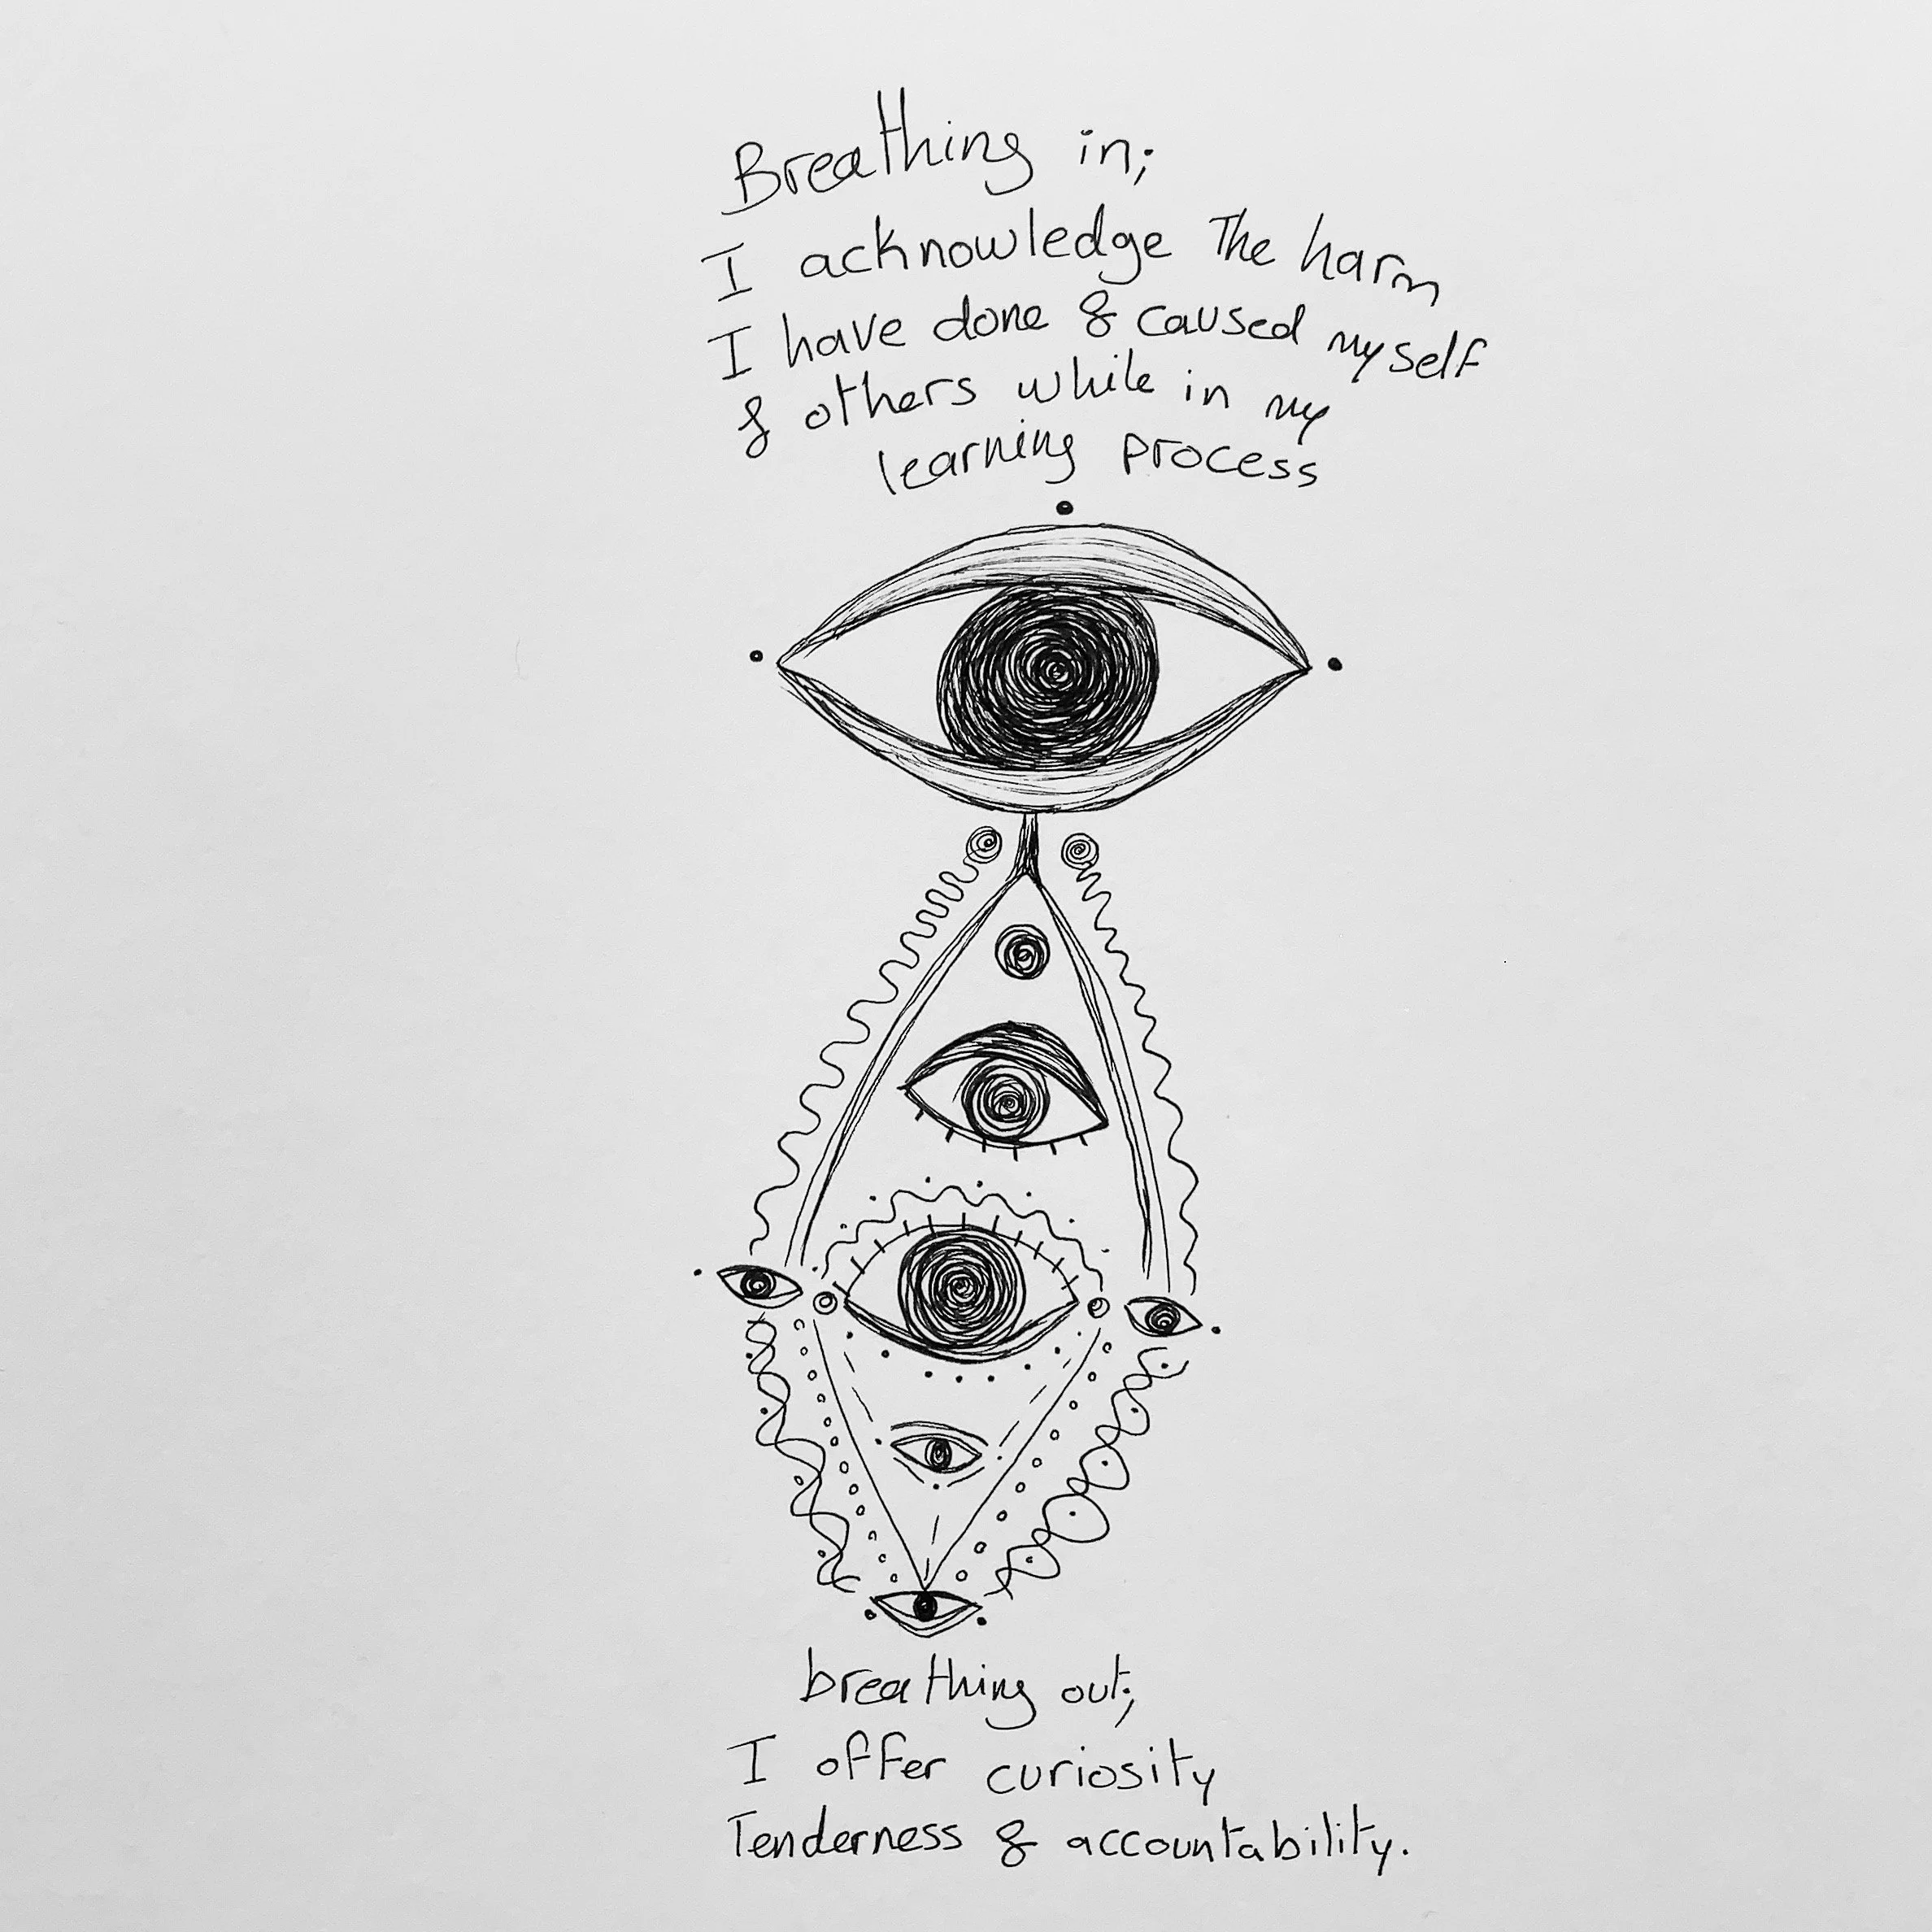 Breathing in;
I acknowledge The harm
I have done & caused myself
& others while in my
learning process
breathing out;
I offer curiosity
Tenderness & accountability.